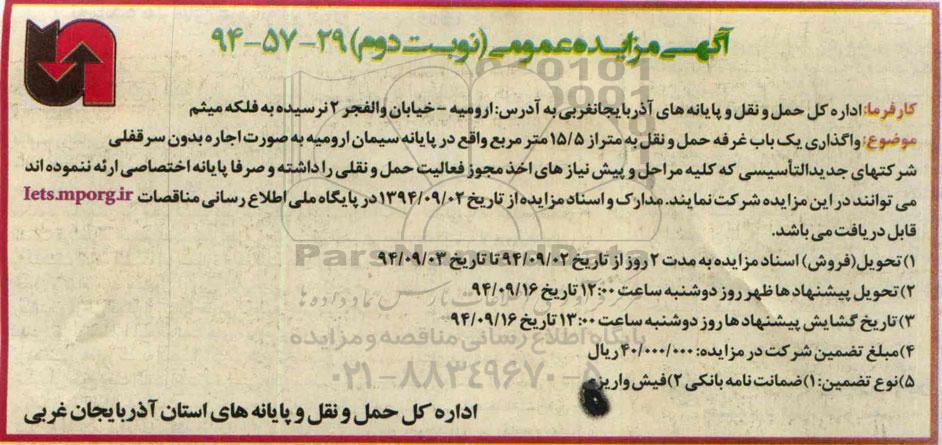 آگهی مزایده عمومی (نوبت دوم) ۲۹-۵۷-۹۴
کارفرما: اداره کل حمل و نقل و پایانه های آذربایجانغربی به آدرس: ارومیه - خیابان والفجر ۲ نرسیده به فلکه میثم
موضوع: واگذاری یک باب غرفه حمل و نقل به متراژ ۱۵/۵ متر مربع واقع در پایانه سیمان ارومیه به صورت اجاره بدون سرقفلی
شرکتهای جدیدالتأسیسی که کلیه مراحل و پیش نیاز های اخذ مجوز فعالیت حمل و نقلی را داشته و صرفا پایانه اختصاصی ارئه ننموده اند
می توانند در این مزایده شرکت نمایند. مدارک و اسناد مزایده از تاریخ ۱۳۹۴/۰۹/۰۲ در پایگاه ملی اطلاع رسانی مناقصات Iets.mporg.ir
قابل دریافت می باشد.
۱) تحویل (فروش) اسناد مزایده به مدت ۲ روز از تاریخ ۹۴/۰۹/۰۲ تا تاریخ ۹۴/۰۹/۰۳
ParsNamadData
۲) تحویل پیشنهاد ها ظهر روز دوشنبه ساعت ۱۲:۰۰ تاریخ ۹۴/۰۹/۱۶
۳) تاریخ گشایش پیشنهاد ها روز دوشنبه ساعت ۱۳:۰۰ تاریخ ۹۴/۰۹/۱۶
پایگاه اطلاع رسانی مناقصه و مزایده
۴) مبلغ تضمین شرکت در مزایده: ۴۰/۰۰۰/۰۰۰ ریال
۰۲۱-۸۸۳۴۹۶۷۰-۵
۵) نوع تضمین: ۱) ضمانت نامه بانکی ۲) فیش واریزی
اداره کل حمل و نقل و پایانه های استان آذربایجان غربی